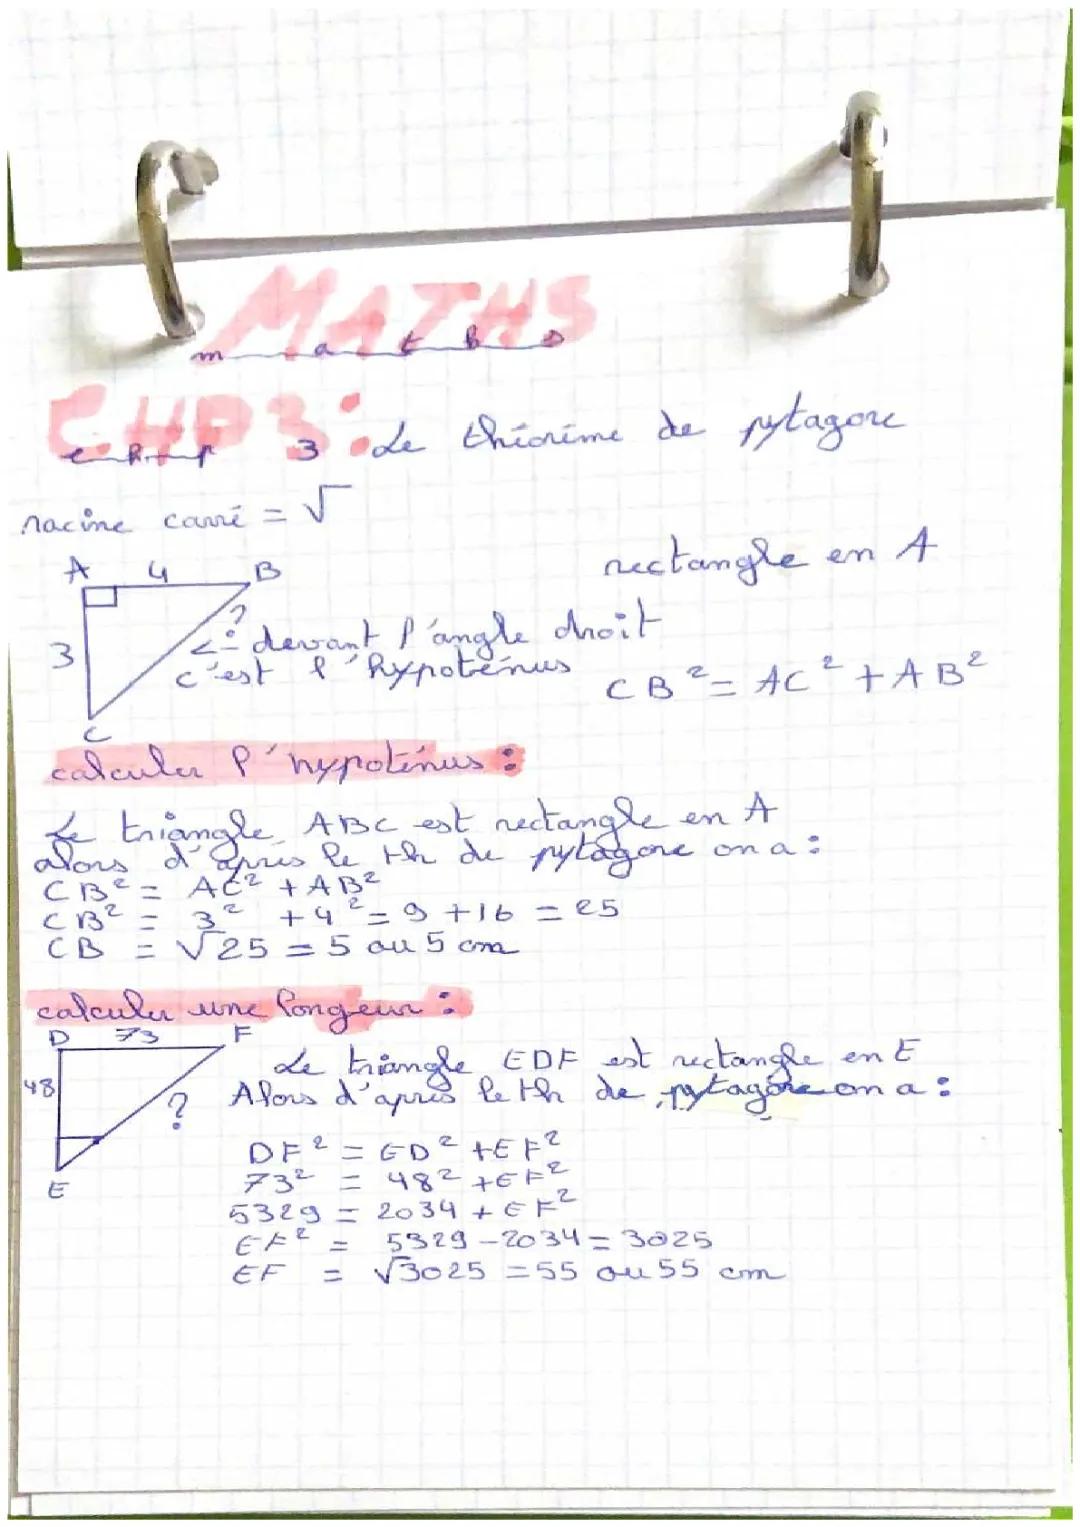 MATHS
maths
CHP3:
chp 3 Le théorème de pytagore
racine carré = √
A 4 B
rectangle en A
3
?
<= devant l'angle droit
c'est l'hypoténus
CB² = AC² + AB²
C
calculer l'hypoténus :
Le triangle ABC est rectangle en A
alors d'après le th de pytagore on a :
CB² = AC² + AB²
CB² = 3² + 4² = 9 + 16 = 25
CB = √25 = 5 ou 5 cm
calculer une longeur :
D 73 F
Le triangle EDF est rectangle en E
48
?
Alors d'après le th de pytagore on a :
E
DF² = ED² + EF²
73² = 48² + EF²
5329 = 2034 + EF²
EF² = 5329 - 2034 = 3025
EF = √3025 = 55 ou 55 cm